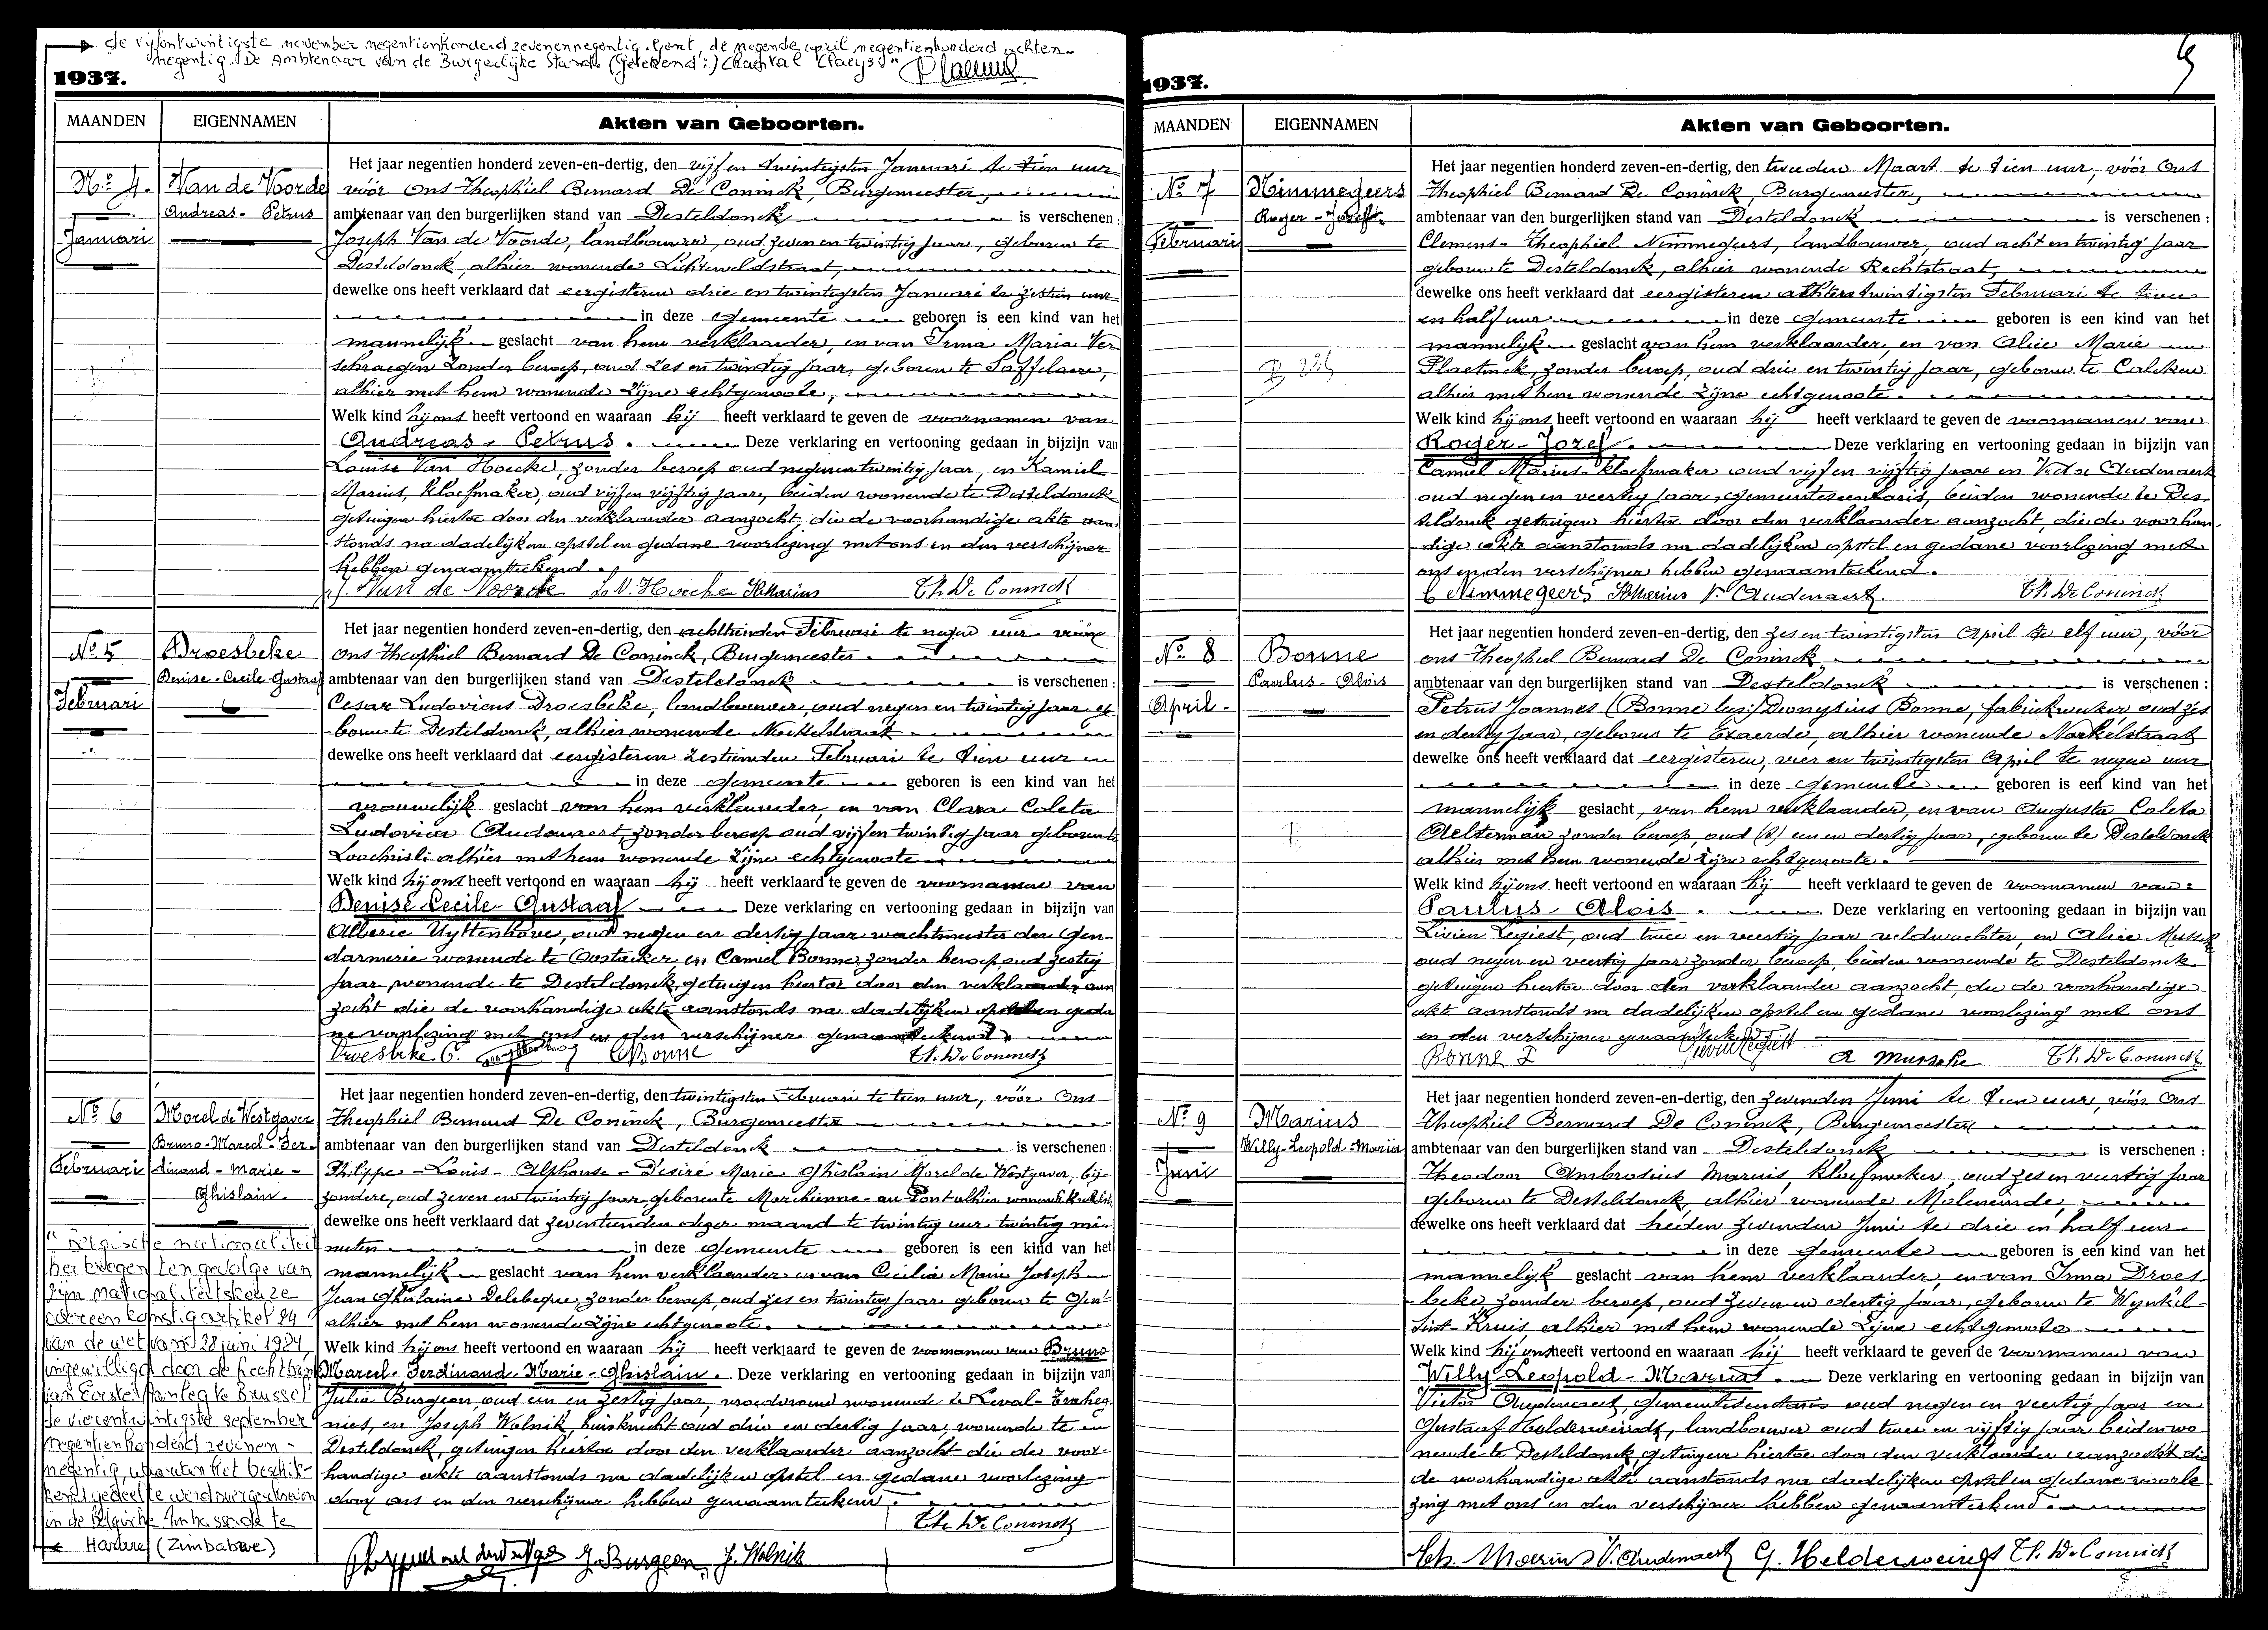 de vijfentwintigste november negentienhonderd zevenennegentig. Gent, de negende april negentienhonderd achten-
negentig. De Ambtenaar van de Burgerlijke Stand. (Getekend:) Chantal Claeys."
1937.
MAANDEN EIGENNAMEN Akten van Geboorten.
No 4. Van de Voorde
Andreas-Petrus
Januari
Het jaar negentien honderd zeven-en-dertig, den vijf en twintigsten Januari te tien uur
vóór ons Theophiel Bernard De Coninck, Burgemeester,
ambtenaar van den burgerlijken stand van Desteldonck is verschenen:
Joseph Van de Voorde, landbouwer, oud zeven en twintig jaar, geboren te
Desteldonck, alhier wonende Lichtelveldstraat,
dewelke ons heeft verklaard dat eergisteren drie en twintigsten Januari te zestien uur
in deze gemeente geboren is een kind van het
mannelijk geslacht van hem verklaarder, en van Irma Maria Ver
schraegen zonder beroep, oud zes en twintig jaar, geboren te Saffelaere,
alhier met hem wonende zijne echtgenoote,
Welk kind hij ons heeft vertoond en waaraan hij heeft verklaard te geven de voornamen van
Andreas-Petrus. Deze verklaring en vertooning gedaan in bijzijn van
Louise Van Hoecke, zonder beroep oud negen en twintig jaar, en Kamiel
Marius, kloefmaker, oud vijf en vijftig jaar, beiden wonende te Desteldonck
getuigen hiertoe door den verklaarder aanzocht, die de voorhandige akte aan
stonds na dadelijken opstel en gedane voorlezing met ons en den verschijner
hebben genaamteekend.
J. Van de Voorde L V. Hoecke K Marius Th. De Coninck
No 5 Droesbeke
Denise-Cecile-Gustaaf
Februari
Het jaar negentien honderd zeven-en-dertig, den achttienden Februari te negen uur vóór
ons Theophiel Bernard De Coninck, Burgemeester
ambtenaar van den burgerlijken stand van Desteldonck is verschenen:
Cesar Ludovicus Droesbeke, landbouwer, oud negen en twintig jaar ge
boren te Desteldonck, alhier wonende Neckelstraat
dewelke ons heeft verklaard dat eergisteren zestienden Februari te tien uur
in deze gemeente geboren is een kind van het
vrouwelijk geslacht van hem verklaarder, en van Clara Coleta
Ludovica Audenaert, zonder beroep oud vijf en twintig jaar geboren te
Loochristi alhier met hem wonende zijne echtgenoote
Welk kind hij ons heeft vertoond en waaraan hij heeft verklaard te geven de voornamen van
Denise-Cecile-Gustaaf Deze verklaring en vertooning gedaan in bijzijn van
Alberic Uyttenhove, oud negen en dertig jaar wachtmeester der Gen-
darmerie wonende te Oostacker en Camiel Bonne, zonder beroep oud zestig
jaar wonende te Desteldonck, getuigen hiertoe door den verklaarder aan
zocht die de voorhandige akte aanstonds na dadelijken opstel en geda
ne voorlezing met ons en den verschijner genaamteekend.
Droesbeke C. C Bonne Th. De Coninck
No 6 Morel de Westgaver
Bruno-Marcel-Fer-
Februari dinand-Marie-
Ghislain.
Het jaar negentien honderd zeven-en-dertig, den twintigsten Februari te tien uur, vóór Ons
Theophiel Bernard De Coninck, Burgemeester
ambtenaar van den burgerlijken stand van Desteldonck is verschenen:
Philippe-Louis-Alphonse-Desiré Marie Ghislain Morel de Westgaver, bij-
zondere, oud zeven en twintig jaar geboren te Marchienne-au Pont alhier wonende
dewelke ons heeft verklaard dat zeventienden dezer maand te twintig uur twintig mi-
nuten in deze gemeente geboren is een kind van het
mannelijk geslacht van hem verklaarder en van Cecilia Marie Joseph
Jean Ghislaine Delebeque, zonder beroep, oud zes en twintig jaar geboren te Gent
alhier met hem wonende zijne echtgenoote.
Welk kind hij ons heeft vertoond en waaraan hij heeft verklaard te geven de voornamen van Bruno
Marcel-Ferdinand-Marie-Ghislain. Deze verklaring en vertooning gedaan in bijzijn van
Julia Burgeon, oud een en zestig jaar, vroedvrouw wonende te Leval-Traheg
nies, en Joseph Wolnik, huisknecht oud drie en dertig jaar, wonende te
Desteldonck, getuigen hiertoe door den verklaarder aanzocht die de voor-
handige akte aanstonds na dadelijken opstel en gedane voorlezing
door ons en den verschijner hebben genaamteekend.
Th. De Coninck
J. Burgeon, J. Wolnik
"Belgische nationaliteit
herkregen ten gevolge van
zijn nationaliteitskeuze
overeenkomstig artikel 24
van de wet van 28 juni 1984,
ingewilligd door de Rechtbank
van Eerste Aanleg te Brussel
de vierentwintigste september
negentienhonderd zevenen-
negentig, waarvan het beschik-
kend gedeelte werd overgeschreven
in de Belgische Ambassade te
Harare (Zimbabwe)
1937.
MAANDEN EIGENNAMEN Akten van Geboorten.
No 7 Nimmegeers
Roger-Jozef.
Februari
Het jaar negentien honderd zeven-en-dertig, den tweeden Maart te tien uur, vóór Ons
Theophiel Bernard De Coninck, Burgemeester,
ambtenaar van den burgerlijken stand van Desteldonck is verschenen:
Clement-Theophiel Nimmegeers, landbouwer, oud acht en twintig jaar
geboren te Desteldonck, alhier wonende Rechtstraat,
dewelke ons heeft verklaard dat eergisteren achtentwintigsten Februari te tien
en half uur in deze gemeente geboren is een kind van het
mannelijk geslacht van hem verklaarder, en van Alice Marie
Plaetinck, zonder beroep, oud drie en twintig jaar, geboren te Calcken
alhier met hem wonende zijne echtgenoote.
Welk kind hij ons heeft vertoond en waaraan hij heeft verklaard te geven de voornamen van
Roger-Jozef. Deze verklaring en vertooning gedaan in bijzijn van
Camiel Marius kloefmaker oud vijf en vijftig jaar en Victor Audenaert
oud negen en veertig jaar, gemeentesecretaris, beiden wonende te Des-
teldonck getuigen hiertoe door den verklaarder aanzocht, die de voorhan
dige akte aanstonds na dadelijken opstel en gedane voorlezing met
ons en den verschijner hebben genaamteekend.
C Nimmegeers K Marius V. Audenaert. Th. De Coninck
No 8 Bonne
Paulus-Alois
April
Het jaar negentien honderd zeven-en-dertig, den zes en twintigsten April te elf uur, vóór
ons Theophiel Bernard De Coninck
ambtenaar van den burgerlijken stand van Desteldonck is verschenen:
Petrus Joannes (Bonne lees:) Dionysius Bonne, fabriekwerker, oud zes
en dertig jaar, geboren te Exaerde, alhier wonende Narkelstraat
dewelke ons heeft verklaard dat eergisteren, vier en twintigsten April te negen uur
in deze gemeente geboren is een kind van het
mannelijk geslacht, van hem verklaarder, en van Augusta Coleta
Aelterman zonder beroep, oud een en dertig jaar, geboren te Desteldonck
alhier met hem wonende zijne echtgenoote.
Welk kind hij ons heeft vertoond en waaraan hij heeft verklaard te geven de voornamen van:
Paulus-Alois. Deze verklaring en vertooning gedaan in bijzijn van
Livien Legiest, oud twee en veertig jaar veldwachter, en Alice Mussche
oud negen en veertig jaar zonder beroep, beiden wonende te Desteldonck
getuigen hiertoe door den verklaarder aanzocht, die de voorhandige
akte aanstonds na dadelijken opstel en gedane voorlezing met ons
en den verschijner genaamteekend.
Bonne P Livien Legiest A Mussche Th. De Coninck
No 9 Marius
Willy-Leopold-Maria
Juni
Het jaar negentien honderd zeven-en-dertig, den zevenden Juni te tien uur, vóór Ons
Theophiel Bernard De Coninck, Burgemeester
ambtenaar van den burgerlijken stand van Desteldonck is verschenen:
Theodoor Ambrosius Marius, kloefmaker, oud zes en veertig jaar
geboren te Desteldonck, alhier wonende Moleneinde,
dewelke ons heeft verklaard dat heden zevenden Juni te drie en half uur
in deze gemeente geboren is een kind van het
mannelijk geslacht van hem verklaarder, en van Irma Droes
beke, zonder beroep, oud zeven en dertig jaar, geboren te Wynkel-
Sint-Kruis, alhier met hem wonende zijne echtgenoote
Welk kind hij ons heeft vertoond en waaraan hij heeft verklaard te geven de voornamen van
Willy-Leopold-Maria. Deze verklaring en vertooning gedaan in bijzijn van
Victor Audenaert, gemeentesecretaris oud negen en veertig jaar en
Gustaaf Helderweirdt, landbouwer oud twee en vijftig jaar beiden wo
nende te Desteldonck, getuigen hiertoe door den verklaarder aanzocht die
de voorhandige akte aanstonds na dadelijken opstel en gedane voorle
zing met ons en den verschijner hebben genaamteekend.
Th. Marius V. Audenaert G. Helderweirdt Th. De Coninck